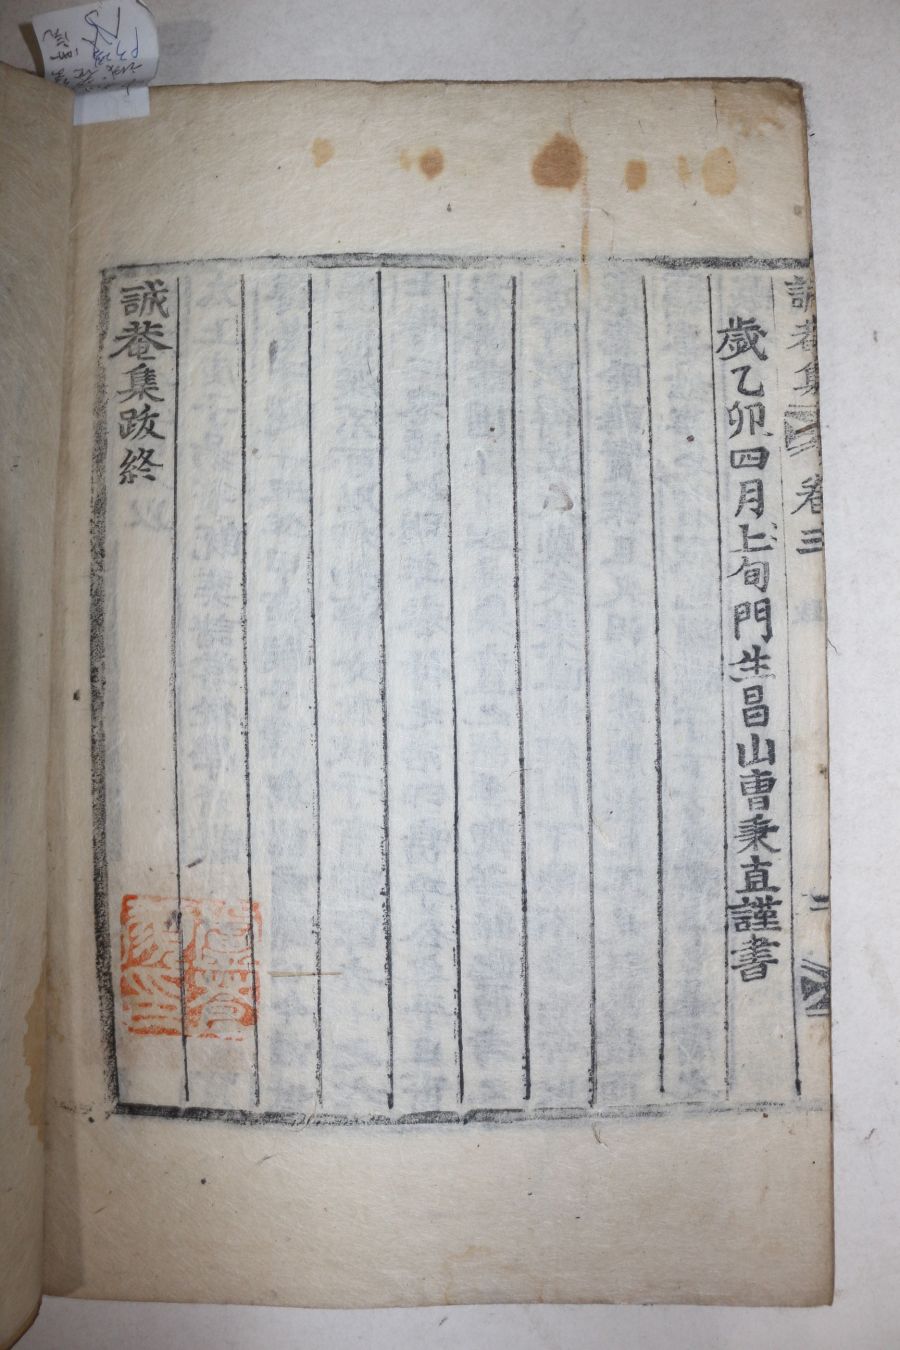 誠菴集 卷三
二
歲乙卯四月上旬門生昌山曹秉直謹書
誠菴集跋終